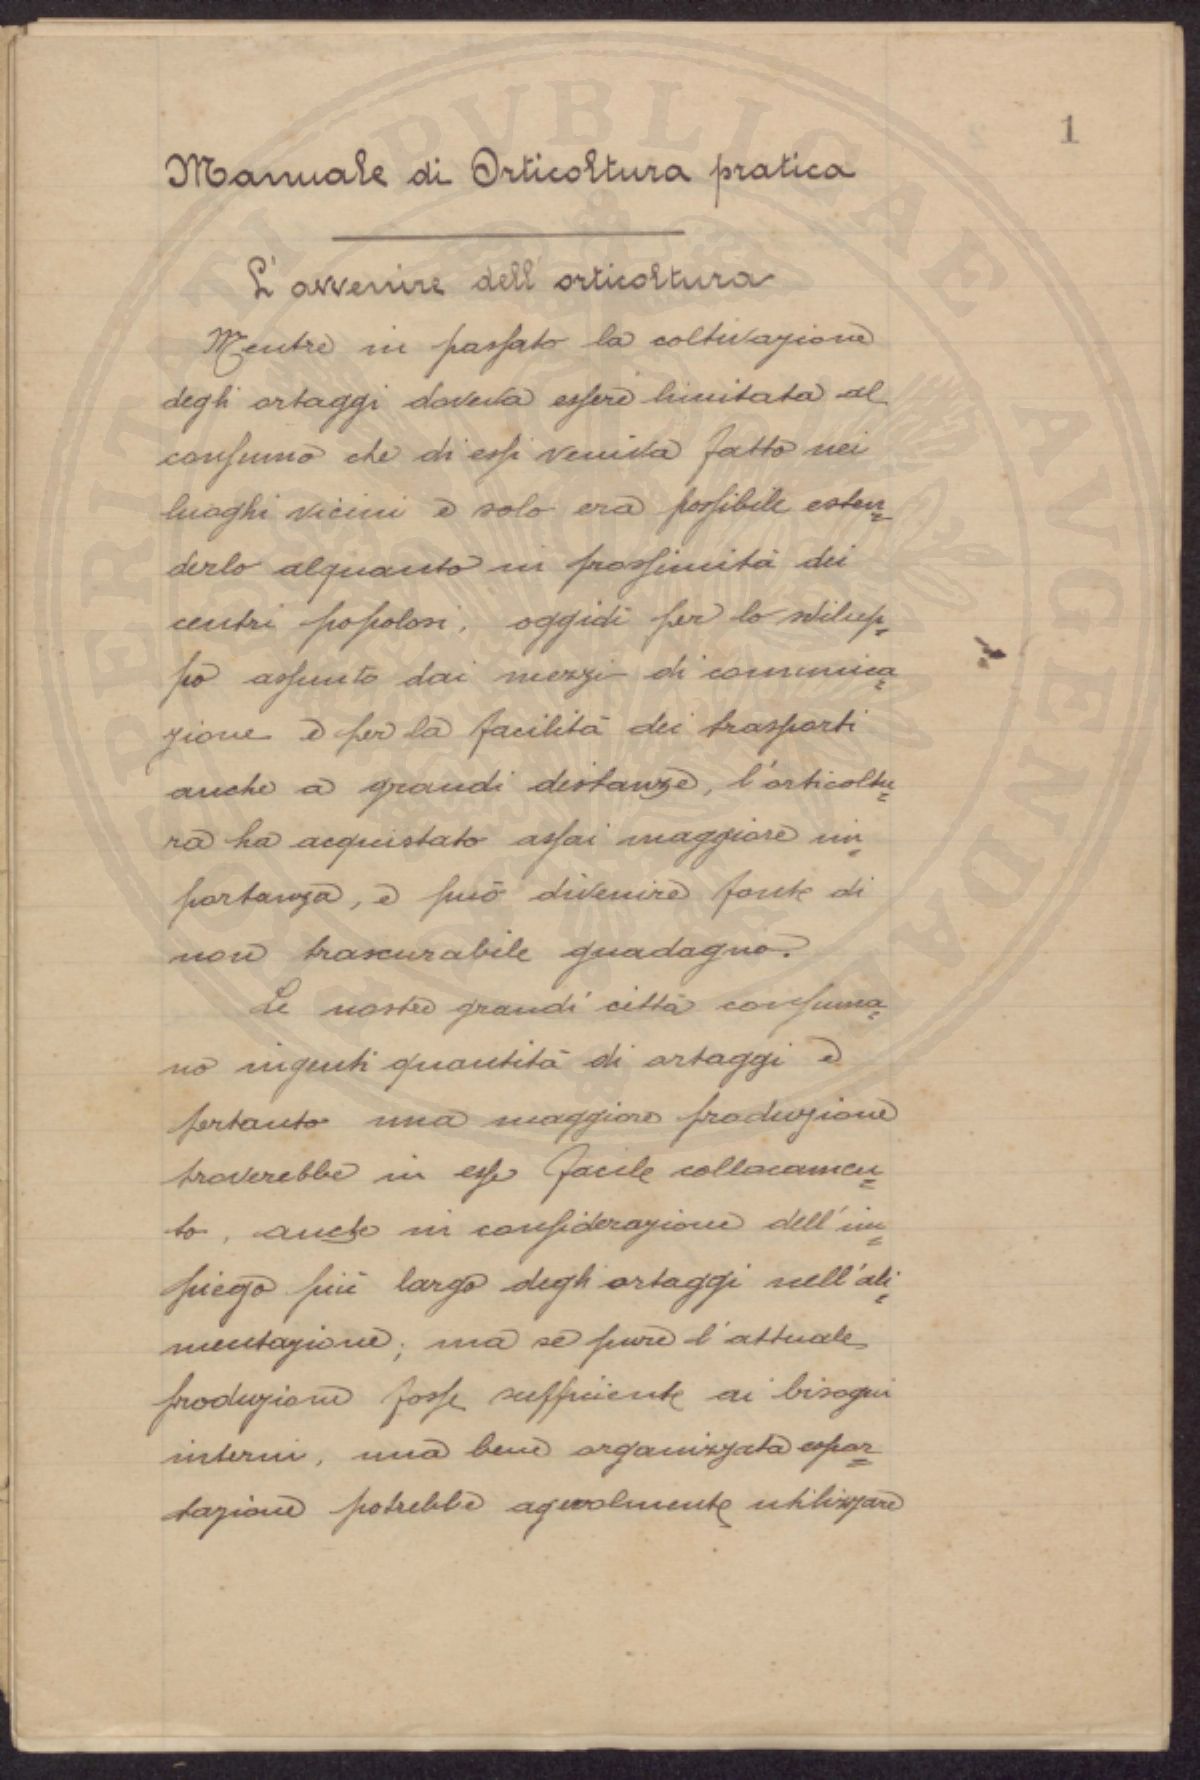 1
Manuale di Orticoltura pratica
L'avvenire dell'orticoltura
Mentre in passato la coltivazione
degli ortaggi doveva essere limitata al
consumo che di essi veniva fatto nei
luoghi vicini e solo era possibile esten=
derlo alquanto in prossimità dei
centri popolosi, oggidì per lo svilup=
po assunto dai mezzi di comunica=
zione e per la facilità dei trasporti
anche a grandi distanze, l'orticoltu=
ra ha acquistato assai maggiore im=
portanza, e può divenire fonte di
non trascurabile guadagno.
Le nostre grandi città consuma=
no ingenti quantità di ortaggi e
pertanto una maggiore produzione
troverebbe in esse facile collocamen=
to, anche in considerazione dell'im=
piego più largo degli ortaggi nell'ali=
mentazione; ma se pure l'attuale
produzione fosse sufficiente ai bisogni
interni, una bene organizzata espor=
tazione potrebbe agevolmente utilizzare